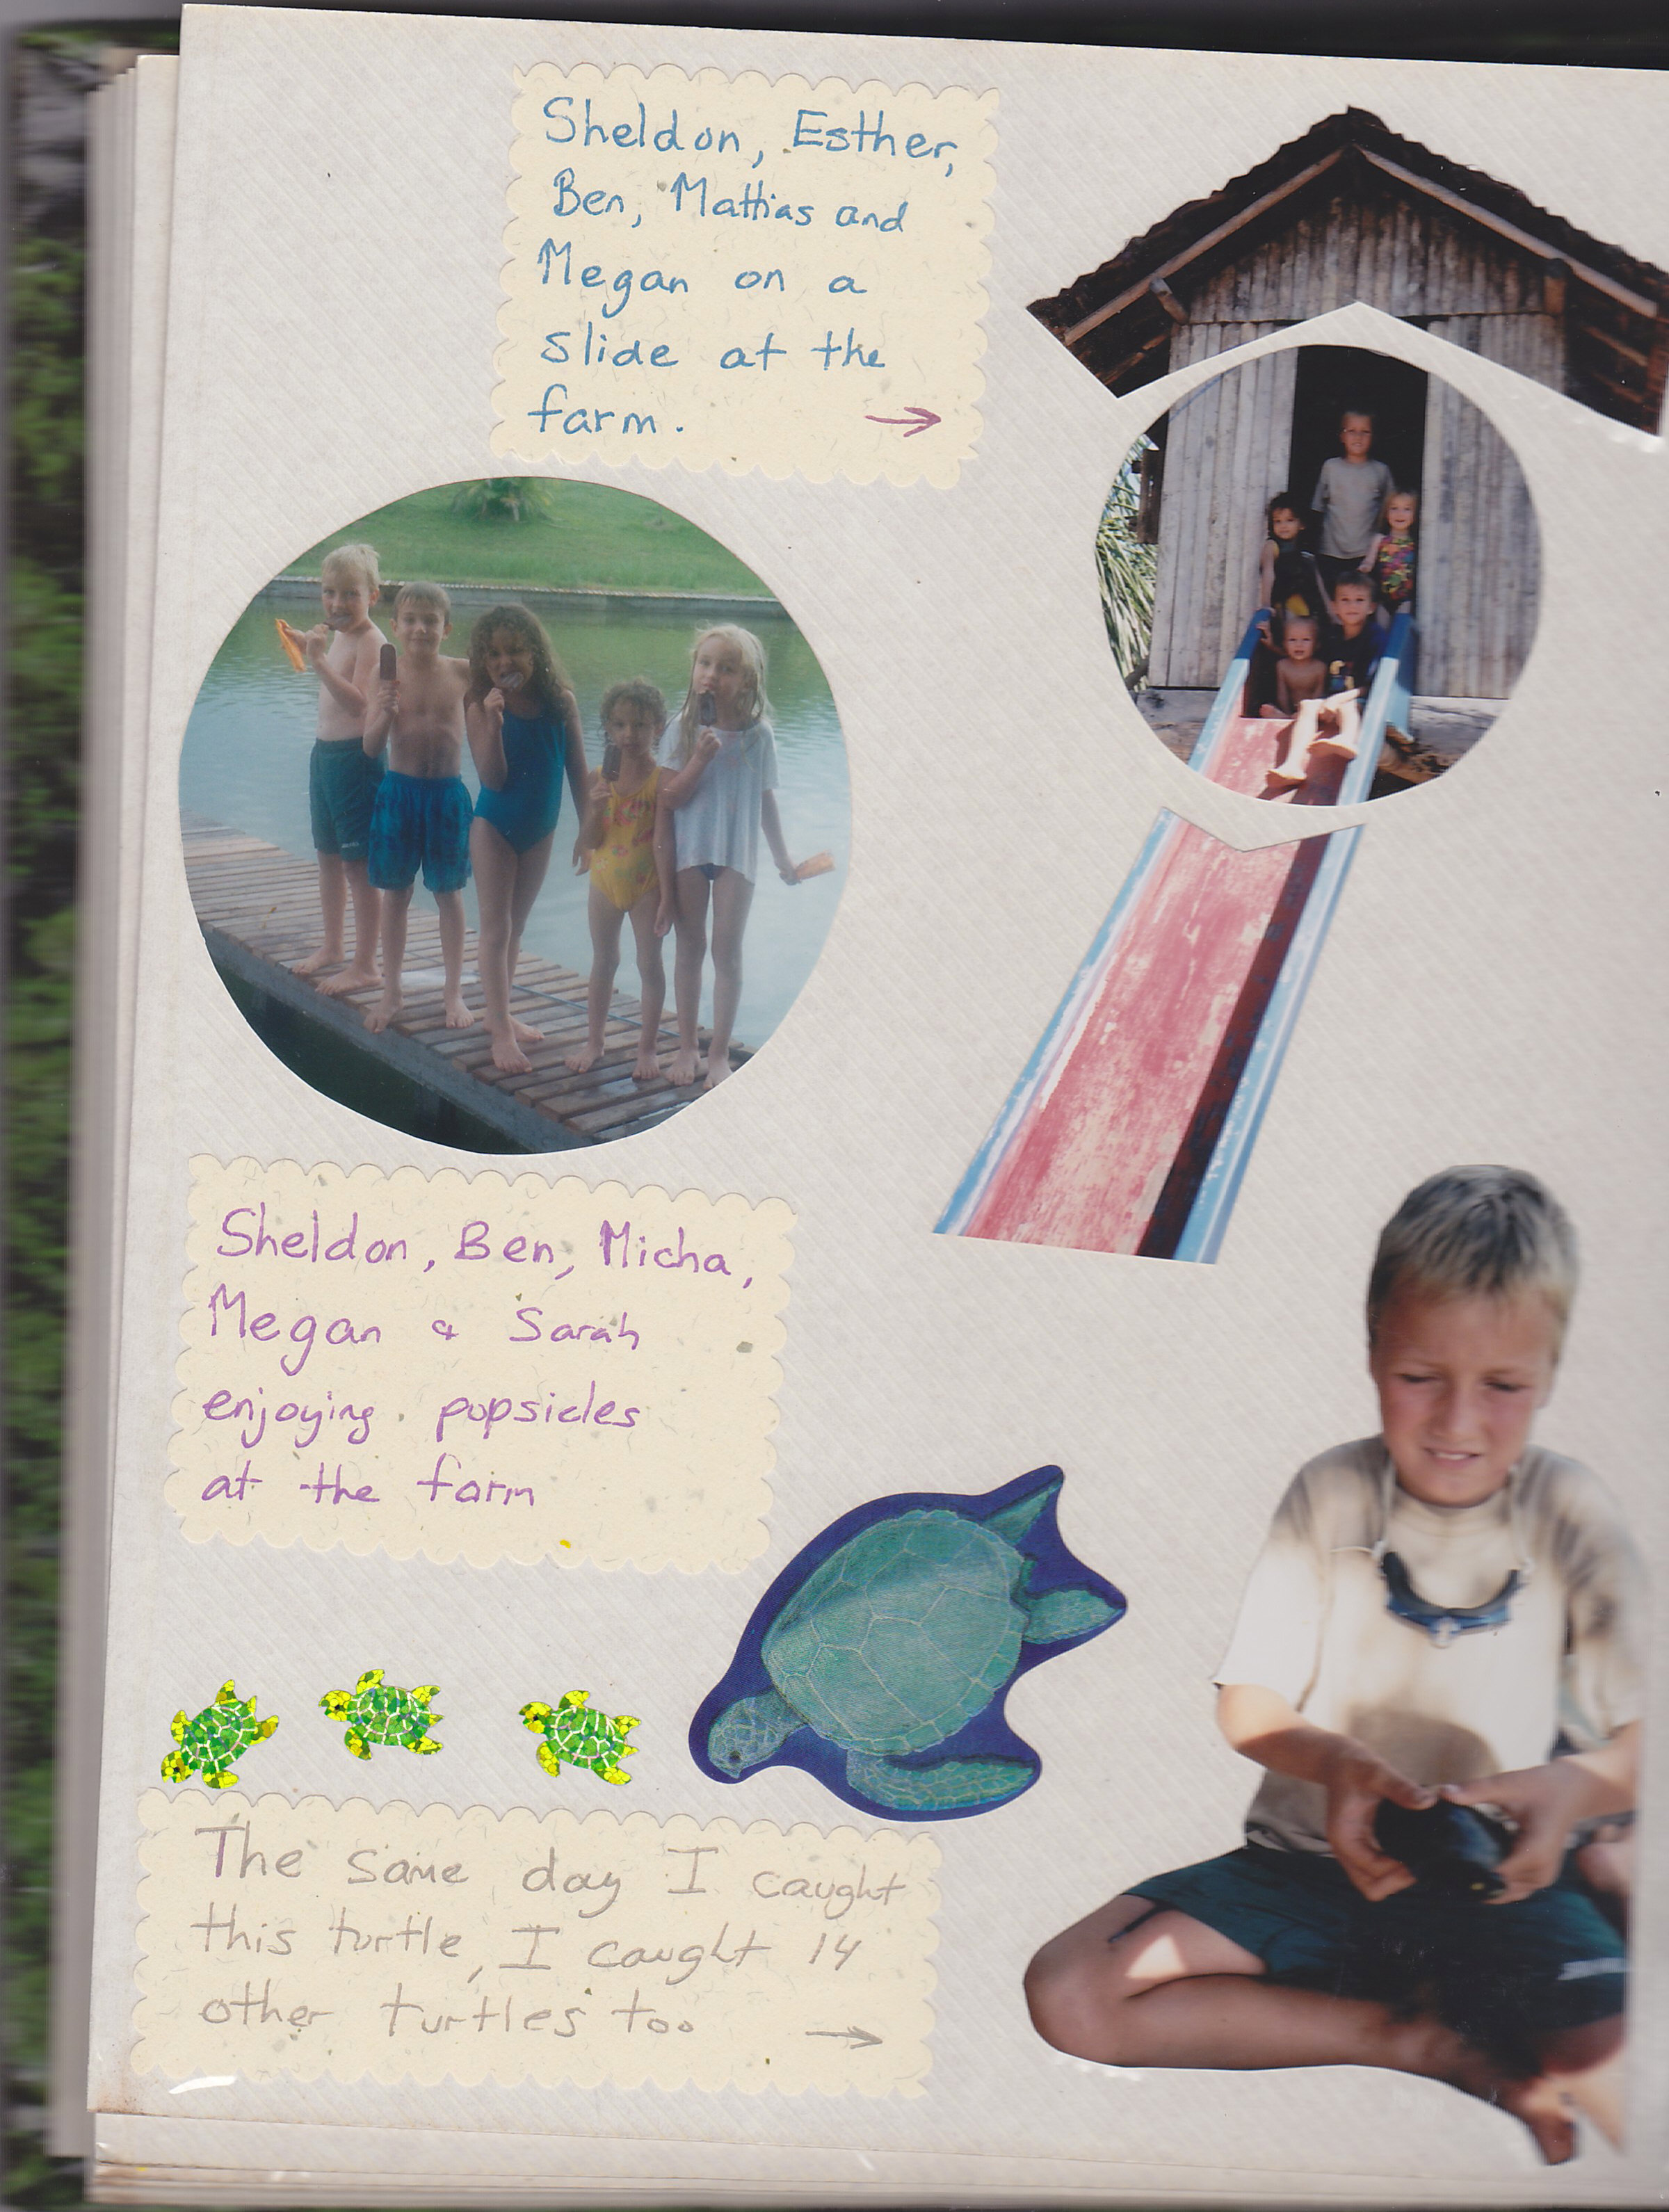 Sheldon, Esther,
Ben, Mattias and
Megan on a
slide at the
farm. →
Sheldon, Ben, Micha,
Megan & Sarah
enjoying popsicles
at the farm
The same day I caught
this turtle, I caught 14
other turtles too →